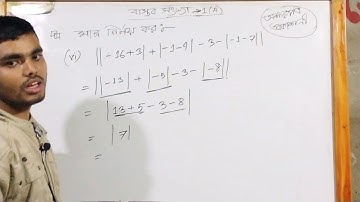 বাস্তব সংখ্যা → 1(A)
মান নির্ণয় কর:
(vi) ||-16+3|+|-1-4|-3-|-1-7||
=||-13|+|-5|-3-|-8||
=|13+5-3-8|
=|7|
=